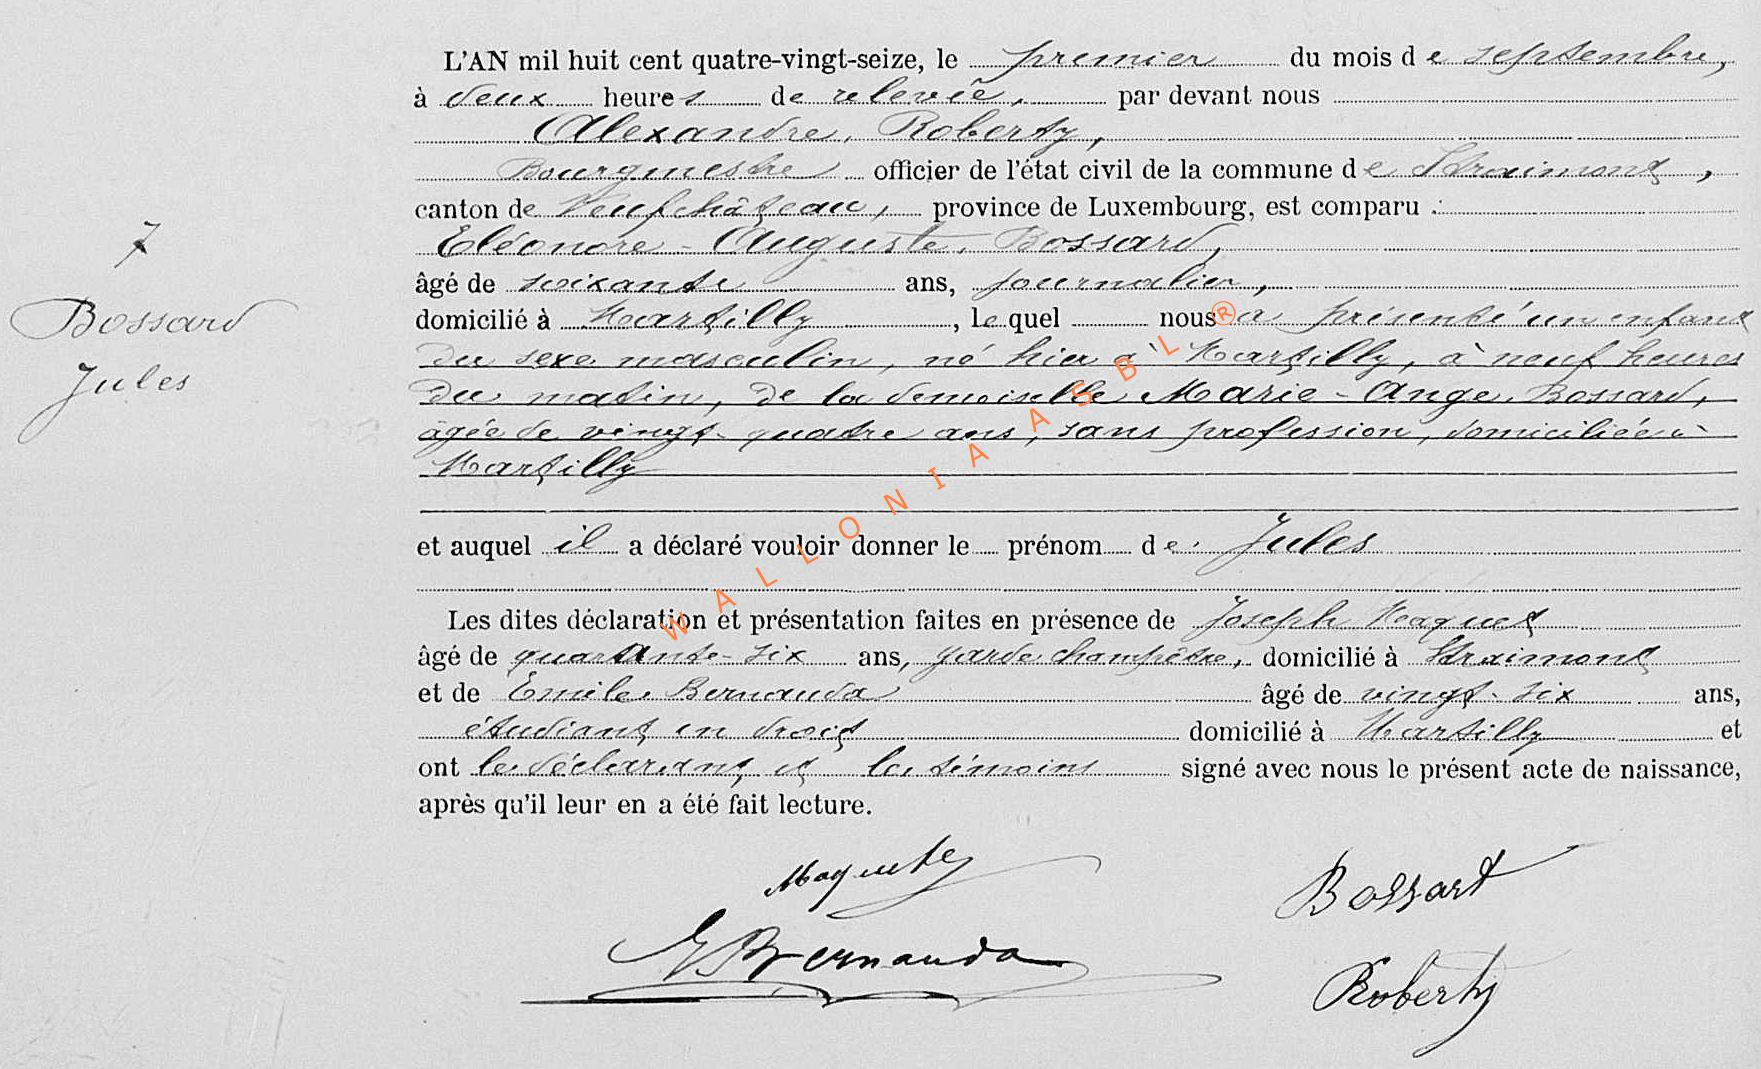 L'AN mil huit cent quatre-vingt-seize, le premier du mois de septembre,
à deux heures de relevée, par devant nous
Alexandre Roberty,
Bourgmestre officier de l'état civil de la commune de Straimont,
canton de Neufchâteau, province de Luxembourg, est comparu :
7
Eléonore-Auguste Bossard,
âgé de soixante ans, journalier,
Bossard
Jules
domicilié à Martilly, lequel nous a présenté un enfant
du sexe masculin, né hier à Martilly, à neuf heures
du matin, de la demoiselle Marie-Ange Bossard,
âgée de vingt-quatre ans, sans profession, domiciliée à
Martilly
et auquel il a déclaré vouloir donner le prénom de Jules
Les dites déclaration et présentation faites en présence de Joseph Maquet
âgé de quarante-six ans, garde champêtre, domicilié à Straimont
et de Emile Bernauda âgé de vingt-six ans,
étudiant en droit domicilié à Martilly et
ont le déclarant et les témoins signé avec nous le présent acte de naissance,
après qu'il leur en a été fait lecture.
Bossart
E Bernauda
Roberty
WALLONIA ASBL ®